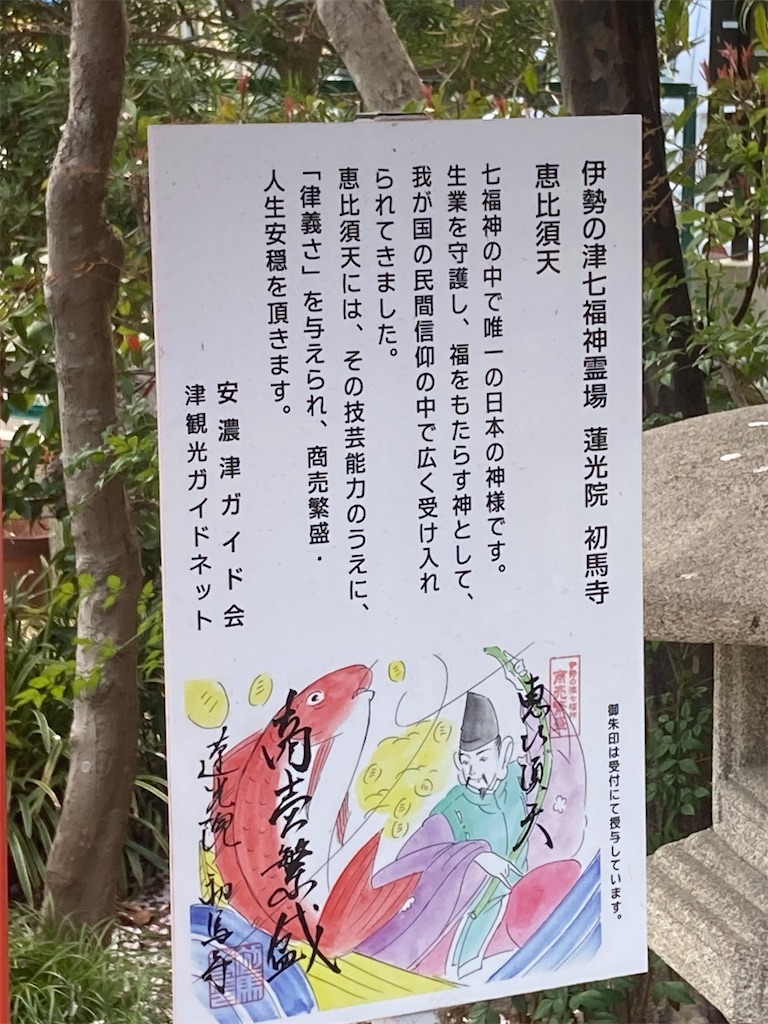 伊勢の津七福神霊場 蓮光院 初馬寺
恵比須天
七福神の中で唯一の日本の神様です。
生業を守護し、福をもたらす神として、
我が国の民間信仰の中で広く受け入れ
られてきました。
恵比須天には、その技芸能力のうえに、
「律義さ」を与えられ、商売繁盛・
人生安穏を頂きます。
安濃津ガイド会
津観光ガイドネット
御朱印は受付にて授与しています。
伊勢の津七福神
商売繁盛
恵比須天
商売繁盛
蓮光院 初馬寺